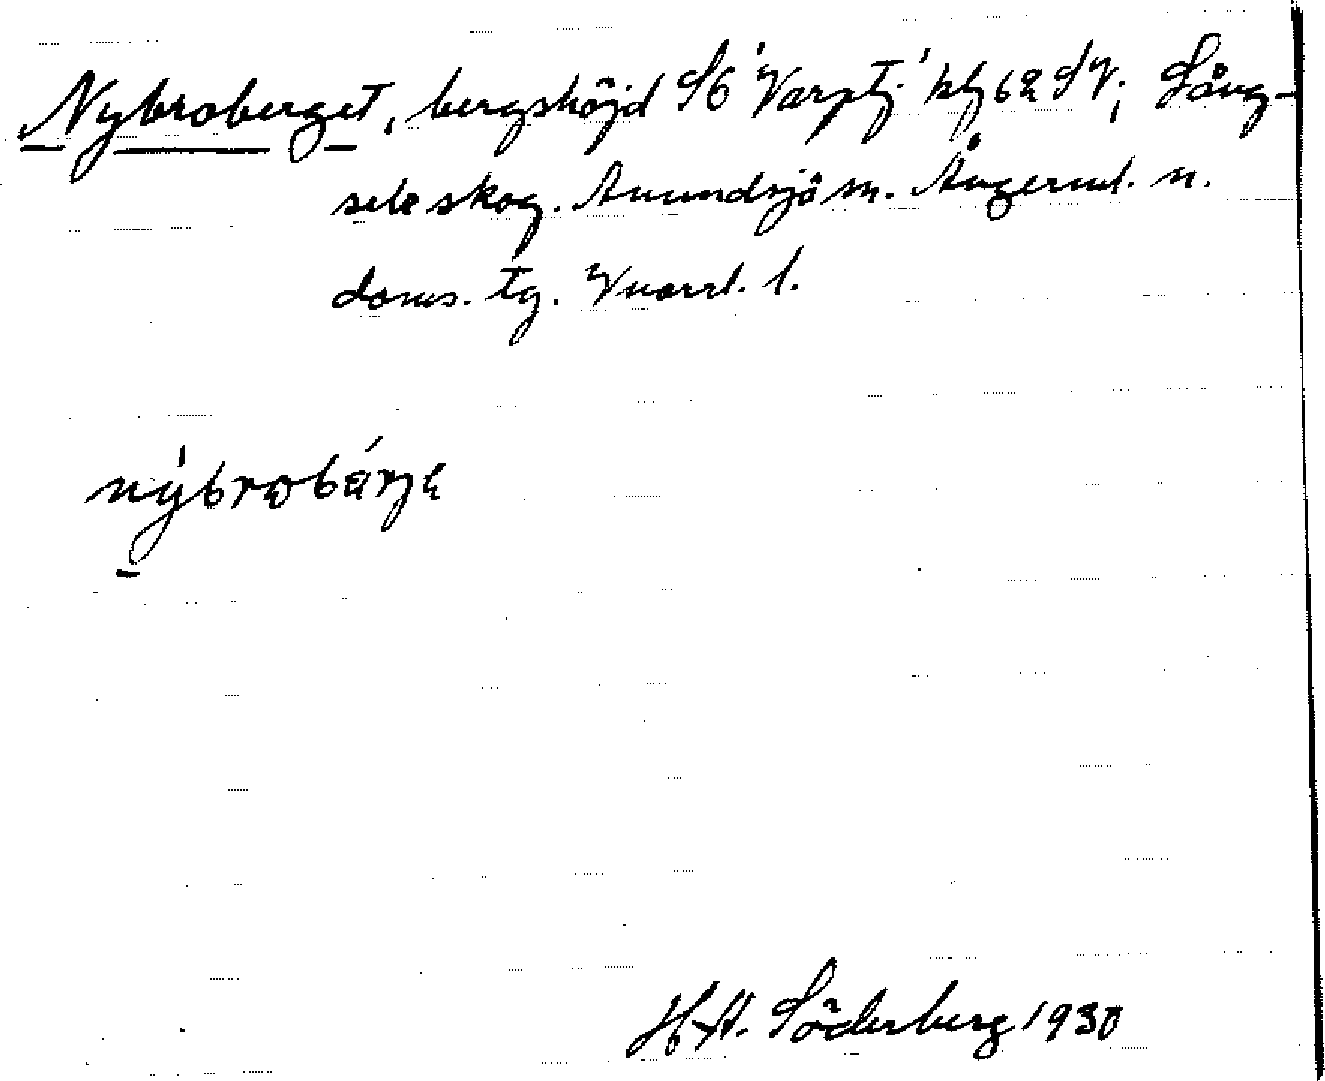 Nybroberget, bergshöjd SÖ 'Varptj' kbl 62 SV; Lång-
sele skog. Anundsjö sn. Ångerml. n.
doms. tg. Vnorrl. l.
nýbrobárjə
H. A. Söderberg 1930